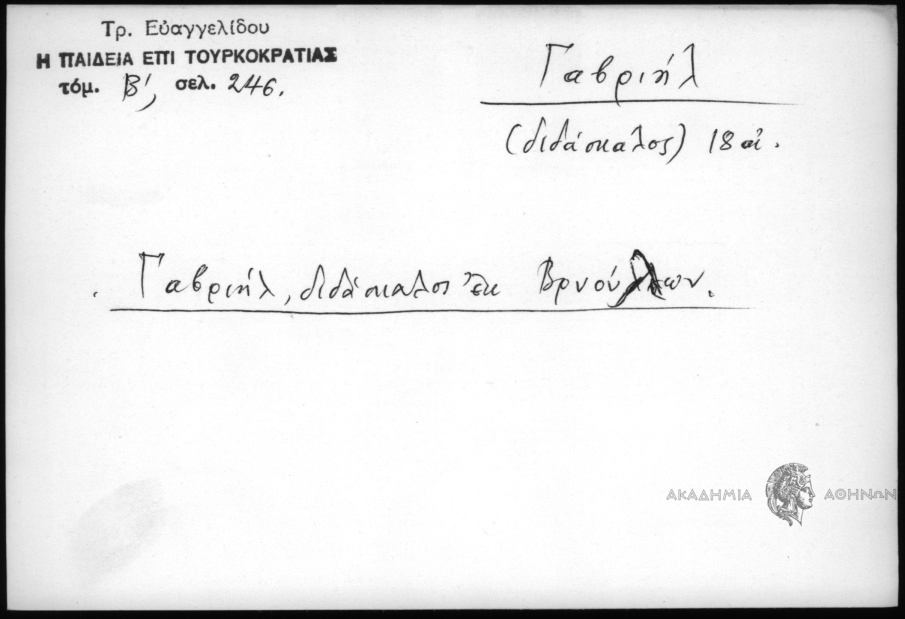 Τρ. Εὐαγγελίδου
Η ΠΑΙΔΕΙΑ ΕΠΙ ΤΟΥΡΚΟΚΡΑΤΙΑΣ
τόμ. Β', σελ. 246.
Γαβριήλ
(διδάσκαλος) 18 αἰ.
Γαβριήλ, διδάσκαλος ἐκ
ΑΚΑΔΗΜΙΑ ΑΘΗΝΩΝ